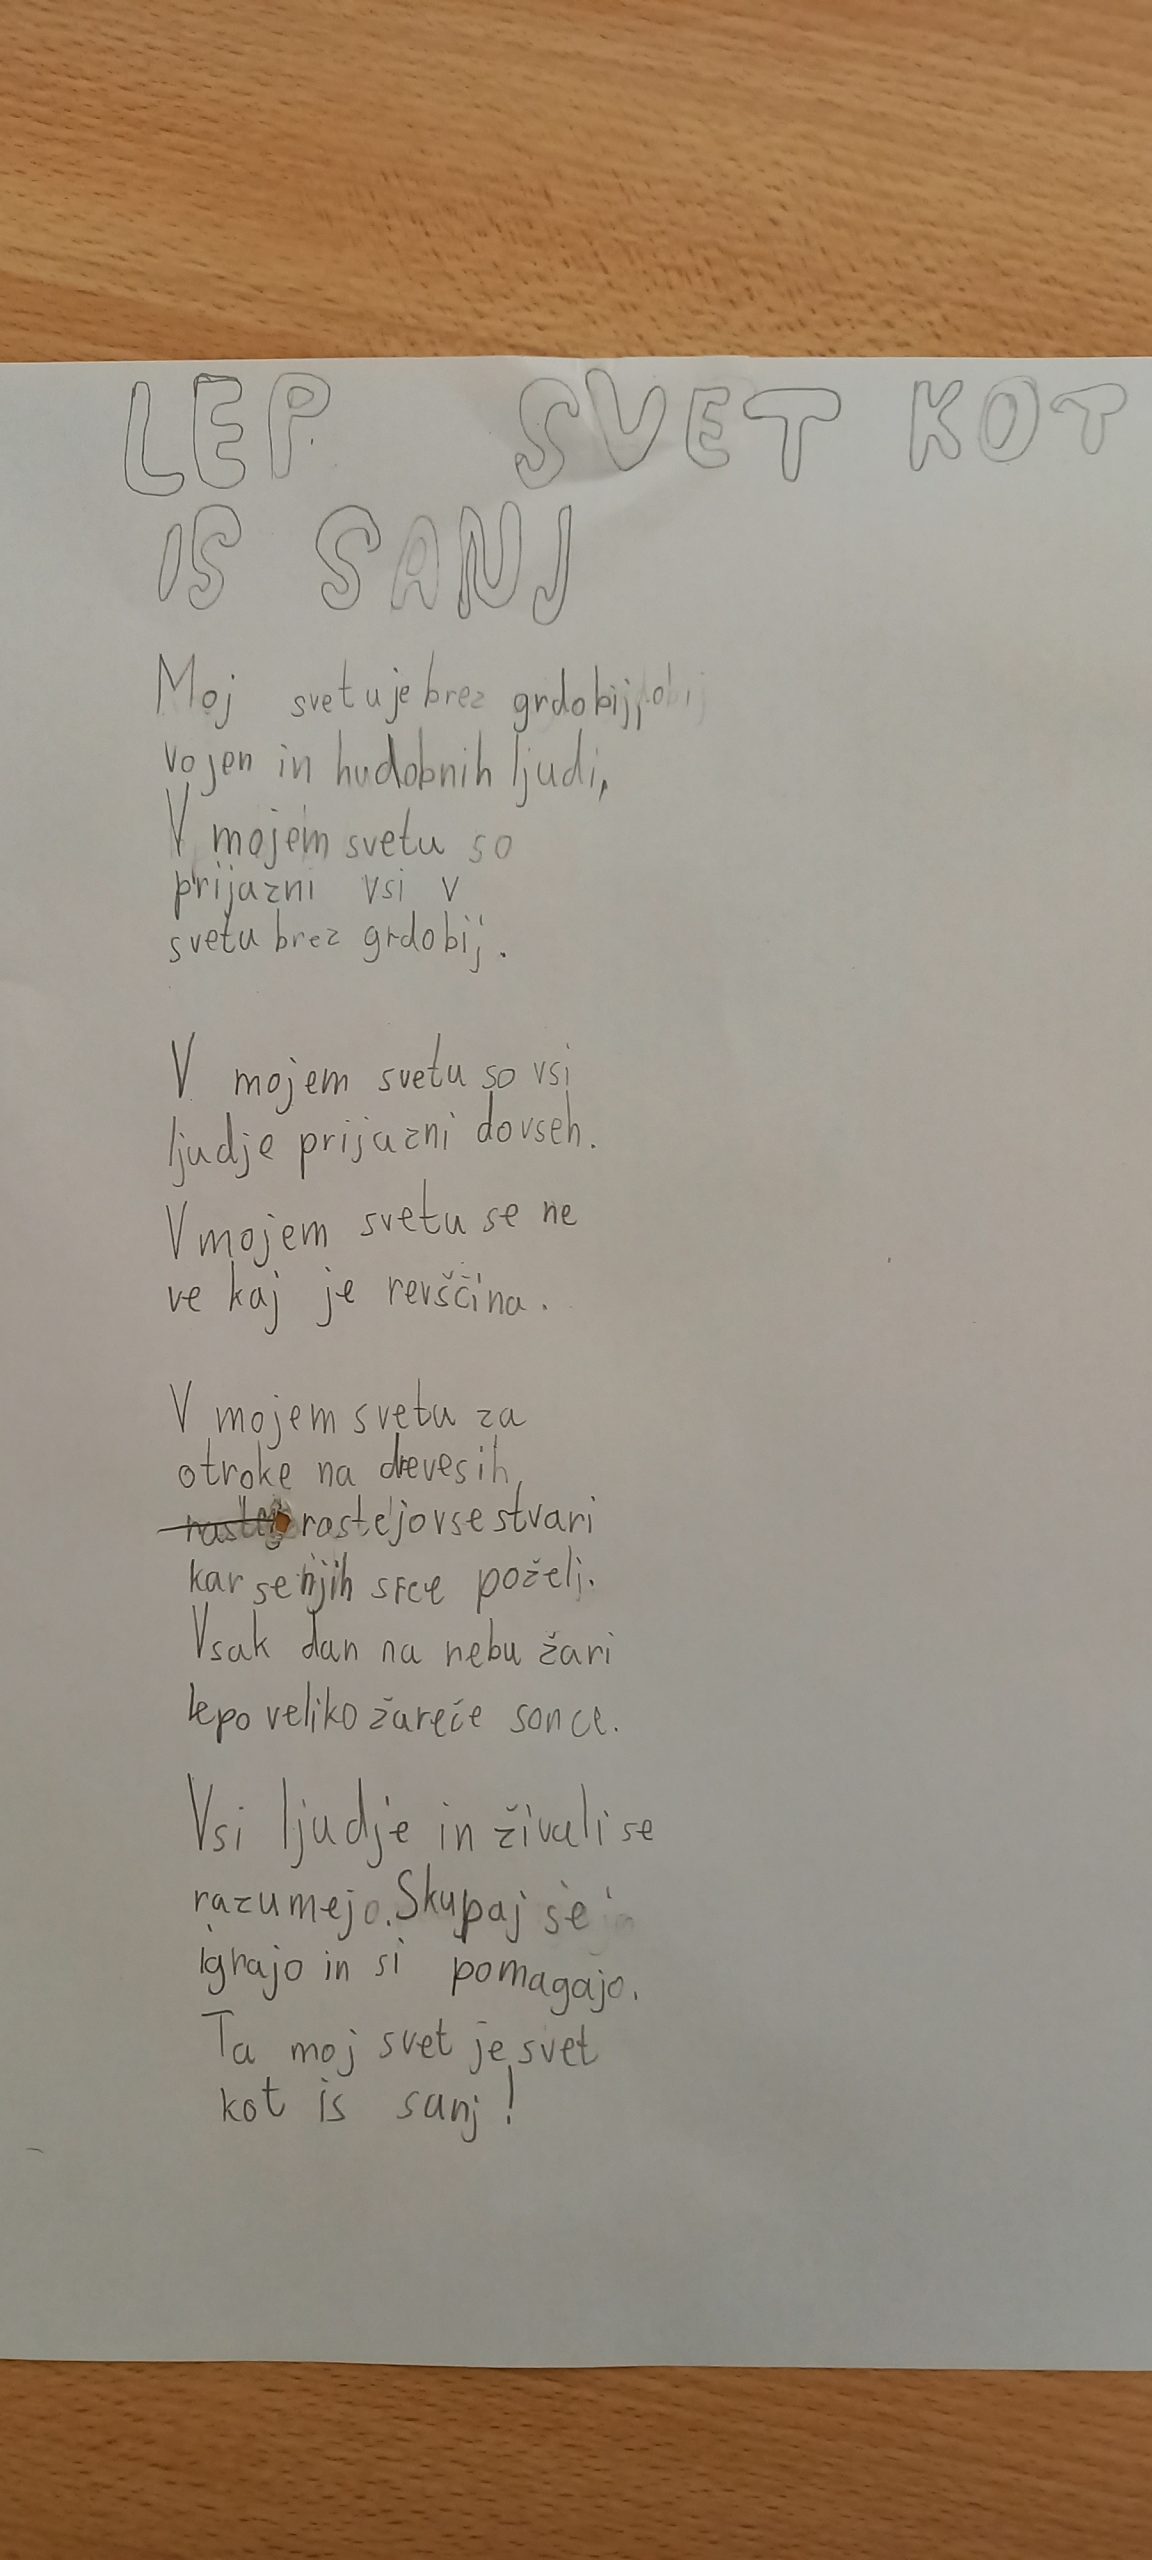 LEP SVET KOT
IS SANJ
Moj svetuje brez grdobij,
vojen in hudobnih ljudi,
V mojem svetu so
prijazni vsi v
svetu brez grdobij.
V mojem svetu so vsi
ljudje prijazni dovseh.
V mojem svetu se ne
ve kaj je revščina.
V mojem svetu za
otroke na drevesih,
rastejo vse stvari
kar se njih srce poželi.
Vsak dan na nebu žari
lepo veliko žareče sonce.
Vsi ljudje in živali se
razumejo. Skupaj se
igrajo in si pomagajo.
Ta moj svet je svet
kot is sanj!